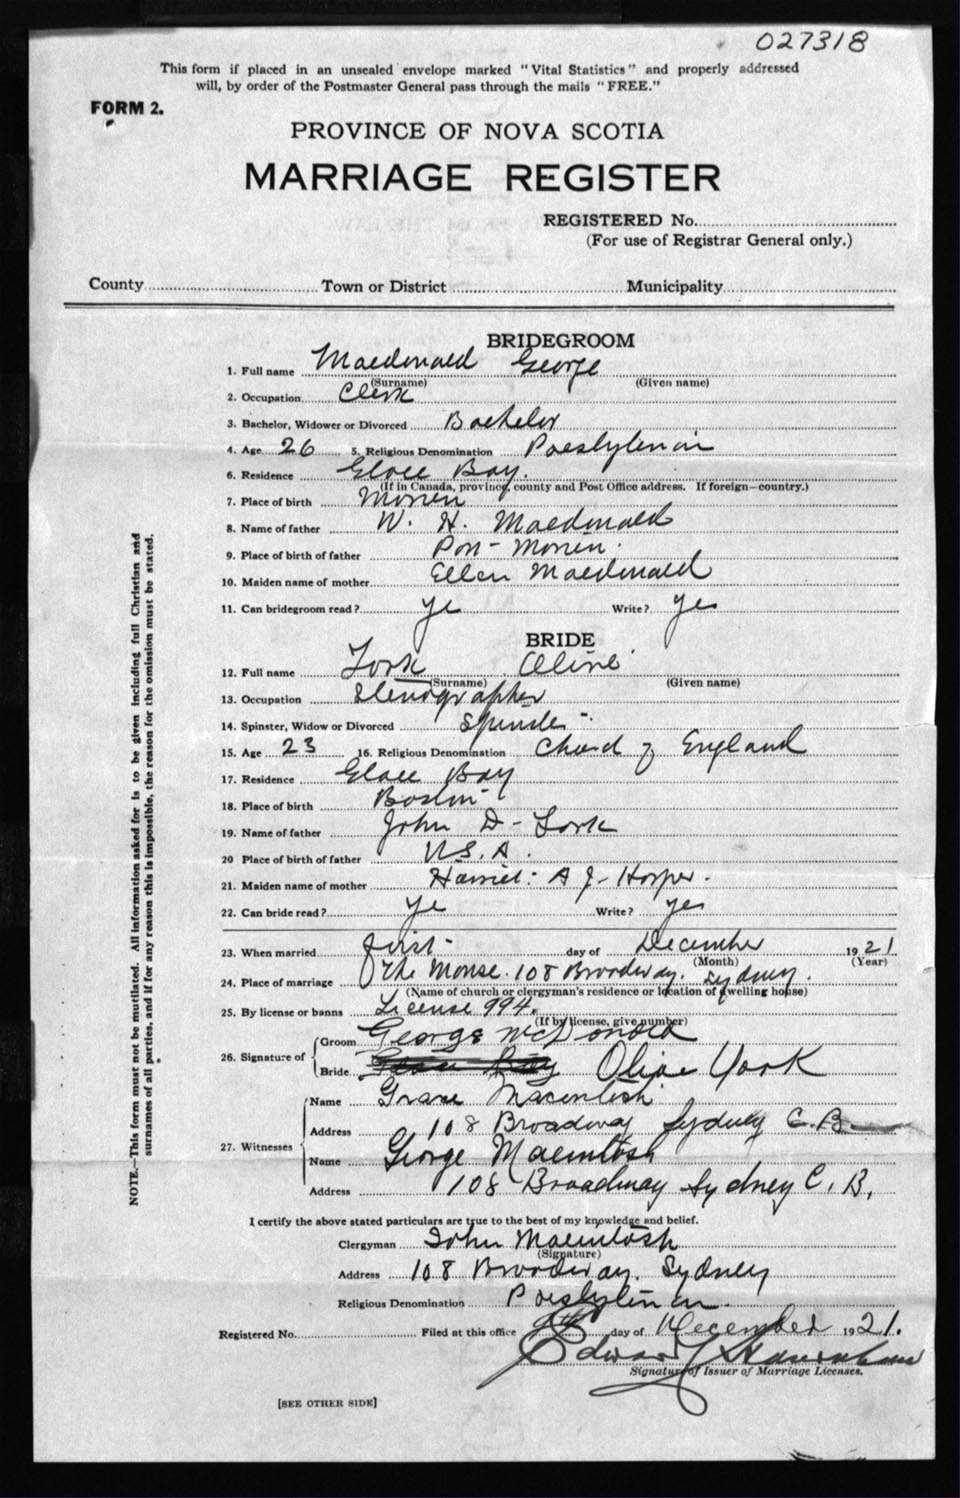 027318
This form if placed in an unsealed envelope marked "Vital Statistics" and properly addressed
will, by order of the Postmaster General pass through the mails "FREE."
FORM 2.
PROVINCE OF NOVA SCOTIA
MARRIAGE REGISTER
REGISTERED No.
(For use of Registrar General only.)
County Town or District Municipality
BRIDEGROOM
1. Full name Macdonald George
(Surname) (Given name)
2. Occupation Clerk
3. Bachelor, Widower or Divorced Bachelor
4. Age 26 5. Religious Denomination Presbyterian
6. Residence Glace Bay.
(If in Canada, province, county and Post Office address. If foreign—country.)
7. Place of birth Morien
8. Name of father W. H. Macdonald
9. Place of birth of father Port Morien.
10. Maiden name of mother Ellen Macdonald
11. Can bridegroom read? Yes Write? Yes
BRIDE
12. Full name York Olive
(Surname) (Given name)
13. Occupation Stenographer
14. Spinster, Widow or Divorced Spinster
15. Age 23 16. Religious Denomination Church of England
17. Residence Glace Bay
18. Place of birth Boston
19. Name of father John D. York
20 Place of birth of father U.S.A.
21. Maiden name of mother Harriet A J. Harper.
22. Can bride read? Yes Write? Yes
23. When married first day of December 1921
(Month) (Year)
24. Place of marriage The Manse. 108 Broadway. Sydney.
(Name of church or clergyman's residence or location of dwelling house)
25. By license or banns License 994.
(If by license, give number)
26. Signature of
Groom George McDonald
Bride Glace Bay Olive York
27. Witnesses
Name Grace Macintosh
Address 108 Broadway Sydney C.B.
Name George Macintosh
Address 108 Broadway Sydney C.B.
I certify the above stated particulars are true to the best of my knowledge and belief.
Clergyman John Macintosh
(Signature)
Address 108 Broadway. Sydney
Religious Denomination Presbyterian.
Registered No. Filed at this office day of December 1921.
Edward
Signature of Issuer of Marriage Licenses.
[SEE OTHER SIDE]
NOTE.—This form must not be mutilated. All information asked for is to be given including full Christian and
surnames of all parties, and if for any reason this is impossible, the reason for the omission must be stated.